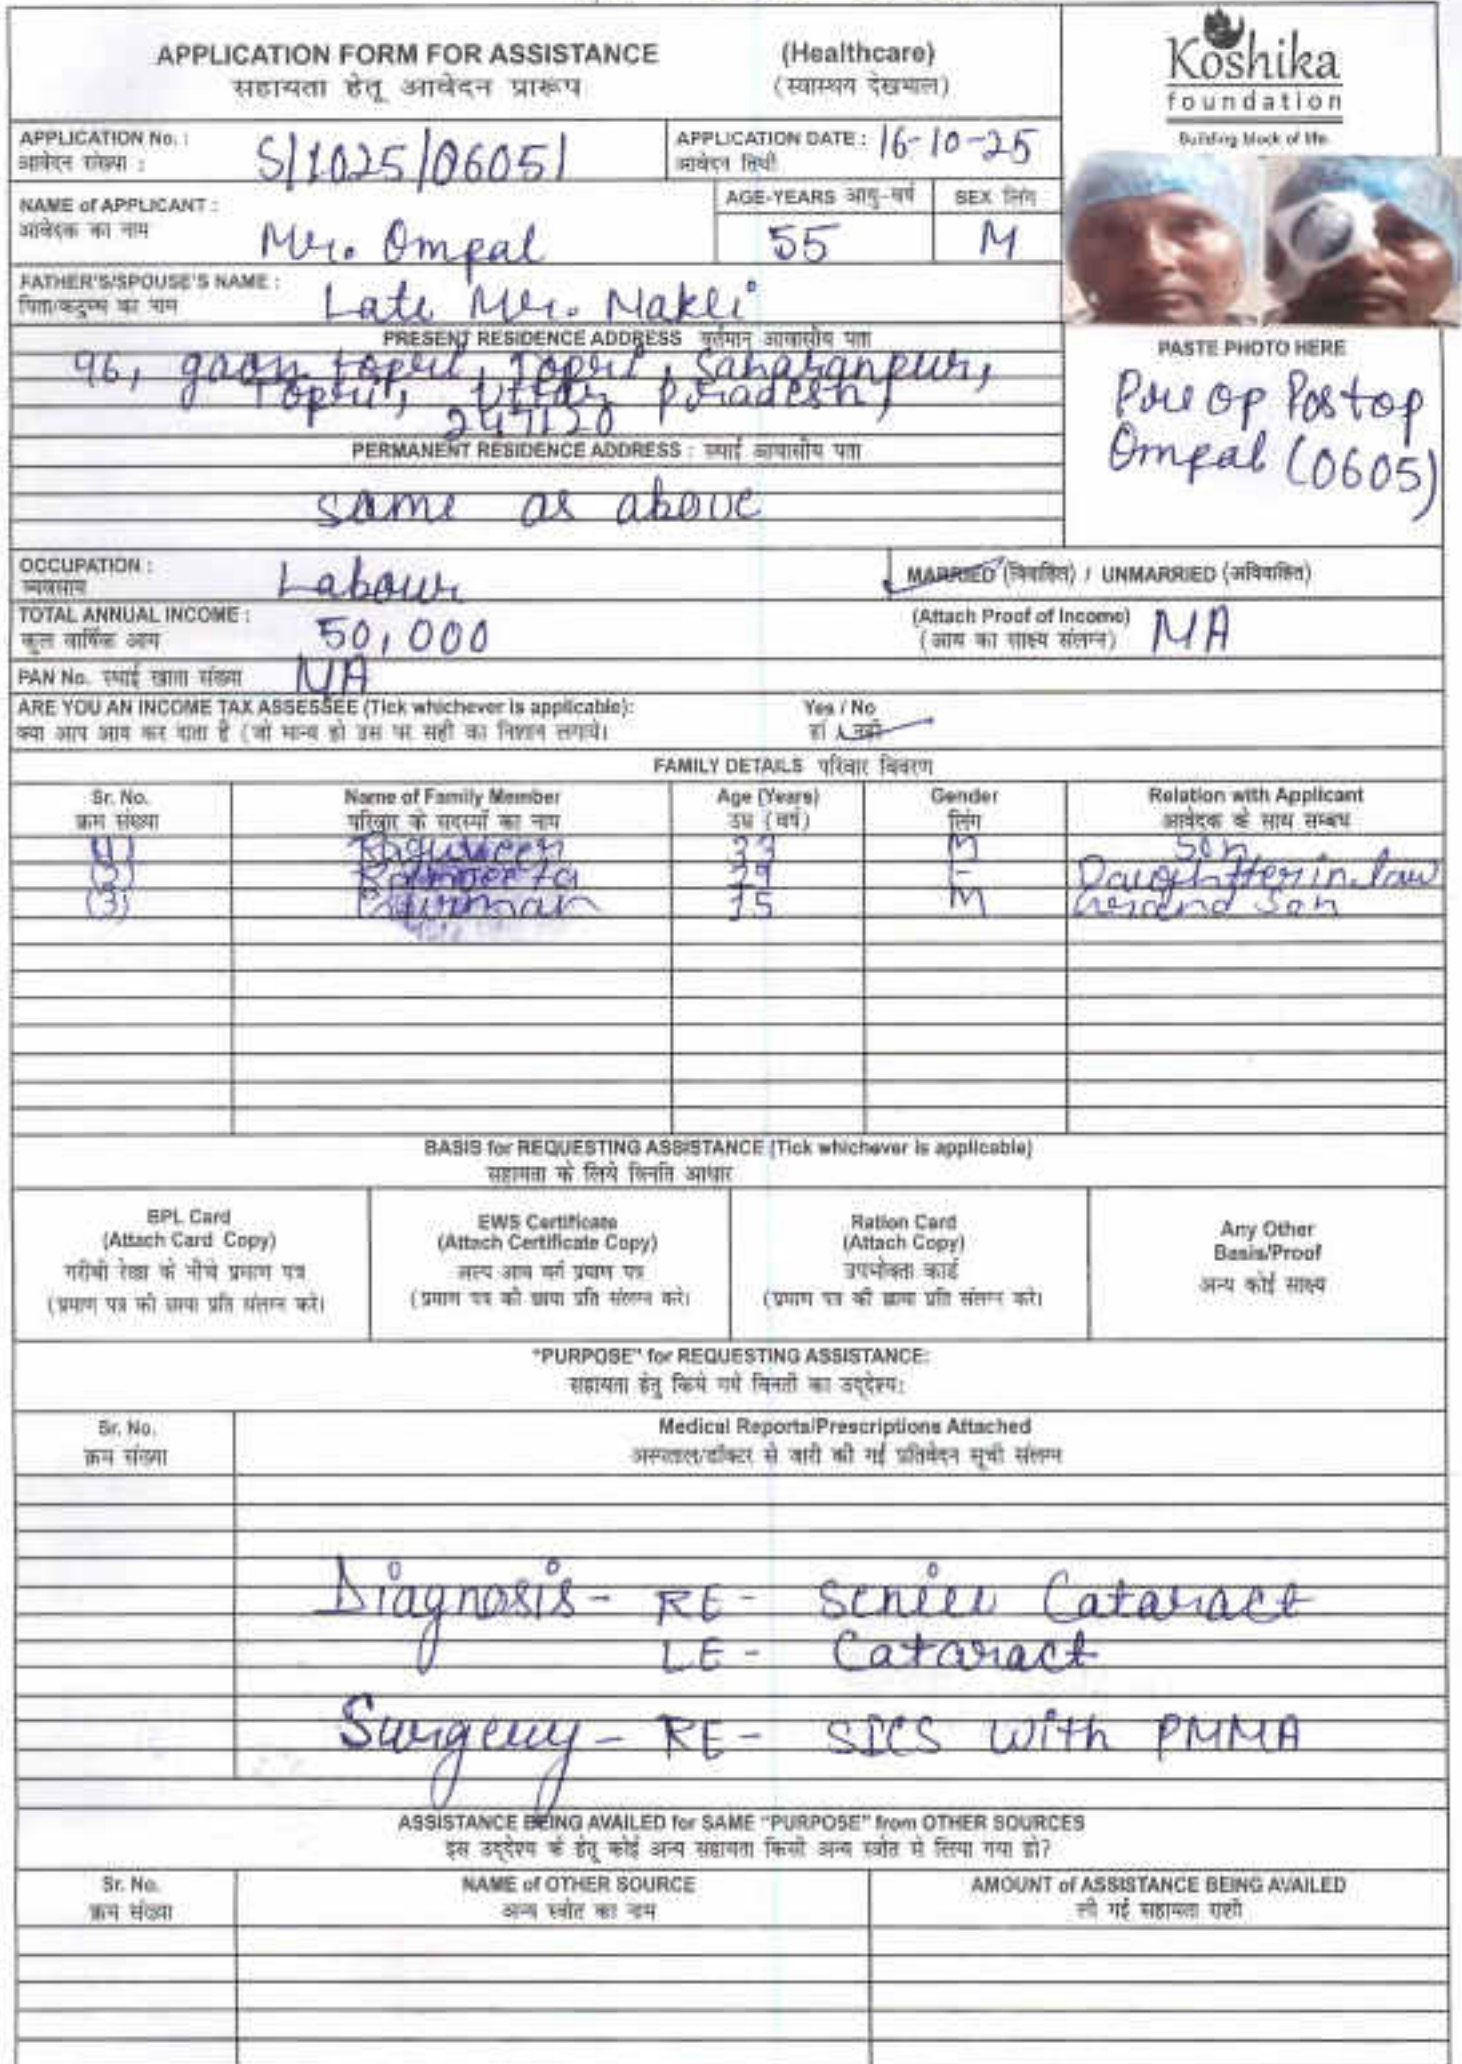 APPLICATION FORM FOR ASSISTANCE (Healthcare)
सहायता हेतू आवेदन प्रारूप (स्वास्थय देखभाल)
Koshika
foundation
Building block of life.
APPLICATION No. : S/1025/06051 APPLICATION DATE : 16-10-25
आवेदन संख्या : आवेदन तिथी
NAME of APPLICANT : Mr. Ompal AGE-YEARS आयु-वर्ष 55 SEX लिंग M
आवेदक का नाम
FATHER'S/SPOUSE'S NAME : Late Mr. Nakli
PRESENT RESIDENCE ADDRESS वर्तमान आवासीय पता
96, gaon Topri, Topri, Saharanpur,
Topri, Uttar Pradesh,
247120
PERMANENT RESIDENCE ADDRESS : स्थाई आवासीय पता
same as above
PASTE PHOTO HERE
Pre op Postop
Ompal (0605)
OCCUPATION : Labour MARRIED (विवाहित) / UNMARRIED (अविवाहित)
व्यवसाय
TOTAL ANNUAL INCOME : 50,000 (Attach Proof of Income) NA
कुल वार्षिक आय (आय का साक्ष्य संलग्न)
PAN No. स्थाई खाता संख्या NA
ARE YOU AN INCOME TAX ASSESSEE (Tick whichever is applicable): Yes / No
क्या आप आय कर दाता है (जो मान्य हो उस पर सही का निशान लगाये। हां / नहीं
FAMILY DETAILS परिवार विवरण
Sr. No. Name of Family Member Age (Years) Gender Relation with Applicant
क्रम संख्या परिवार के सदस्यों का नाम उम्र (वर्ष) लिंग आवेदक के साथ सम्बंध
(1) M Son
(2) 29 F Daughter in law
(3) 15 M Grand Son
BASIS for REQUESTING ASSISTANCE (Tick whichever is applicable)
सहायता के लिये विनति आधार
BPL Card
(Attach Card Copy)
गरीबी रेखा के नीचे प्रमाण पत्र
(प्रमाण पत्र की छाया प्रति संलग्न करे।
EWS Certificate
(Attach Certificate Copy)
अल्प आय वर्ग प्रमाण पत्र
(प्रमाण पत्र की छाया प्रति संलग्न करे।
Ration Card
(Attach Copy)
उपभोक्ता कार्ड
(प्रमाण पत्र की छाया प्रति संलग्न करे।
Any Other
Basis/Proof
अन्य कोई साक्ष्य
"PURPOSE" for REQUESTING ASSISTANCE:
सहायता हेतु किये गये विनती का उद्देश्य:
Sr. No. Medical Reports/Prescriptions Attached
क्रम संख्या अस्पताल/डॉक्टर से जारी की गई प्रतिवेदन सूची संलग्न
Diagnosis - RE - Cataract
LE - Cataract
Surgery - RE - SICS with PMMA
ASSISTANCE BEING AVAILED for SAME "PURPOSE" from OTHER SOURCES
इस उद्देश्य के हेतू कोई अन्य सहायता किसी अन्य स्त्रोत से लिया गया हो?
Sr. No. NAME of OTHER SOURCE AMOUNT of ASSISTANCE BEING AVAILED
क्रम संख्या अन्य स्त्रोत का नाम ली गई सहायता राशी